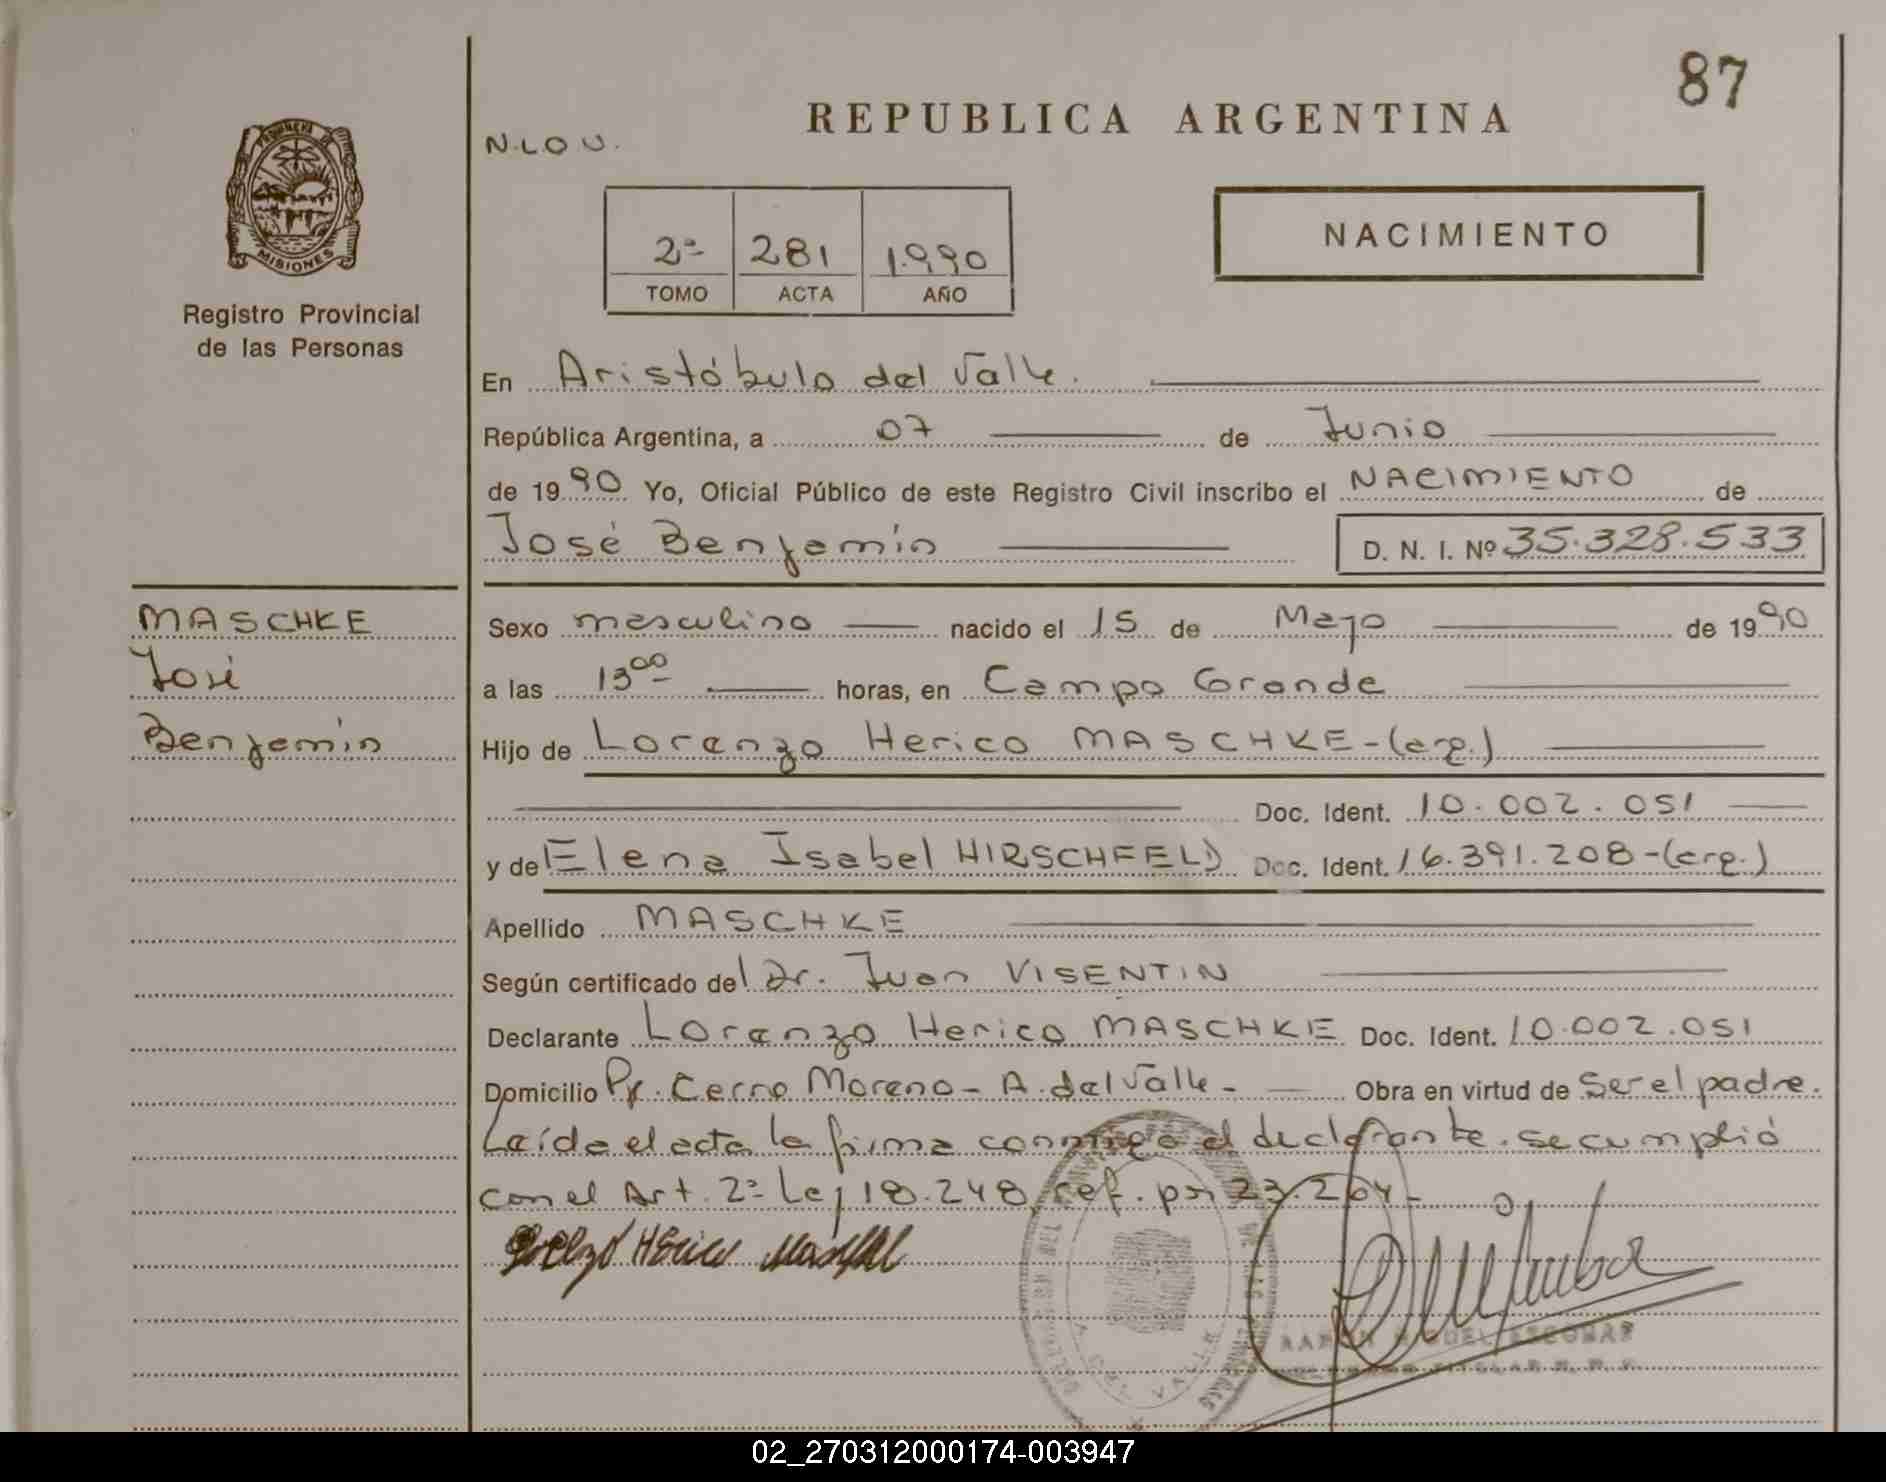 87
REPUBLICA ARGENTINA
N.L.O.U.
PROVINCIA DE
MISIONES
Registro Provincial
de las Personas
2ª 281 1.990
TOMO ACTA AÑO
NACIMIENTO
En Aristóbulo del Valle.
República Argentina, a 07 de Junio
de 19 90 Yo, Oficial Público de este Registro Civil inscribo el NACIMIENTO de
José Benjamín D. N. I. Nº 35.328.533
MASCHKE
José
Benjamín
Sexo masculino nacido el 15 de Mayo de 19 90
a las 13 00 horas, en Campo Grande
Hijo de Lorenzo Herico MASCHKE-(arg.)
Doc. Ident. 10.002.051
y de Elena Isabel HIRSCHFELD Doc. Ident. 16.391.208-(arg.)
Apellido MASCHKE
Según certificado del Dr. Juan VISENTIN
Declarante Lorenzo Herico MASCHKE Doc. Ident. 10.002.051
Domicilio Pje. Cerro Moreno - A. del Valle - Obra en virtud de Ser el padre.
Leída el acta la firma conmigo el declarante. se cumplió
con el Art. 2º Ley 18.248, ref. por 23.264-
Herico
A. DEL VALLE
MIGUEL ESCOBAR
TITULAR
02_270312000174-003947